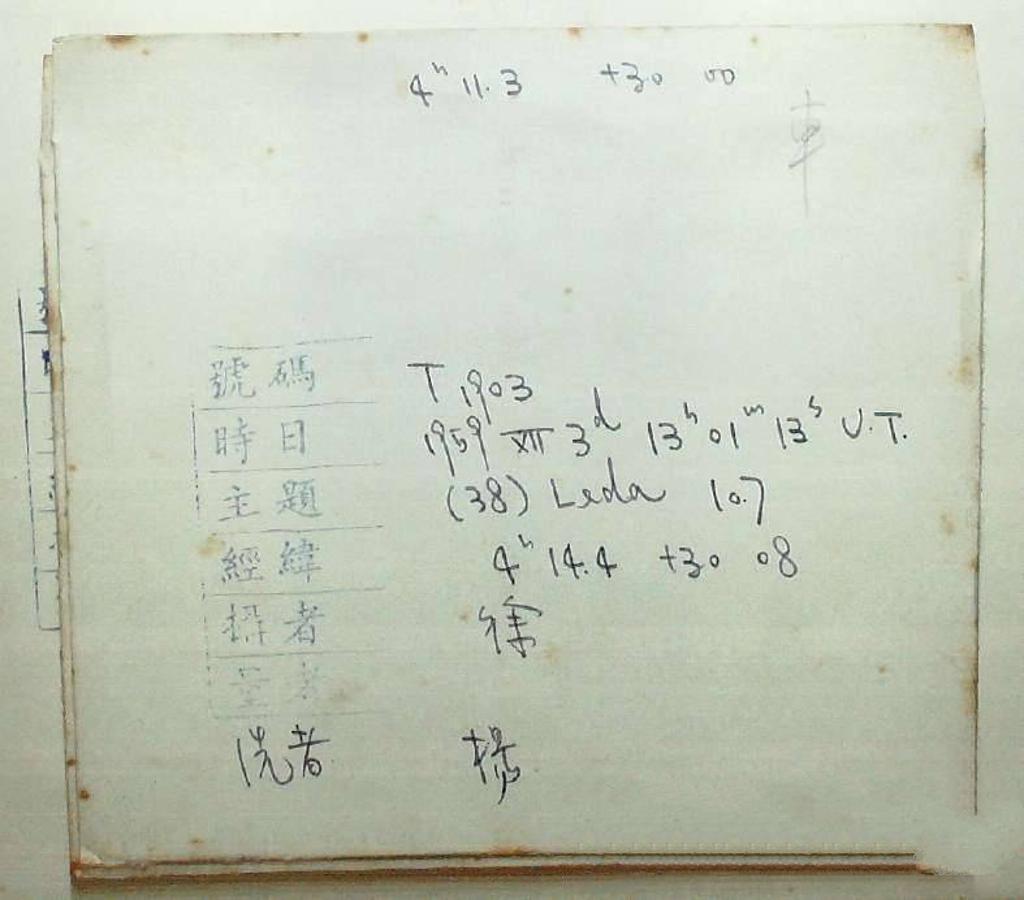 4ʰ 11.3 +30 00
車
號碼 T 1903
時日 1959 XII 3ᵈ 13ʰ 01ᵐ 13ˢ U.T.
主題 (38) Leda 10.7
經緯 4ʰ 14.4 +30 08
攝者 徐
量者
洗者 楊